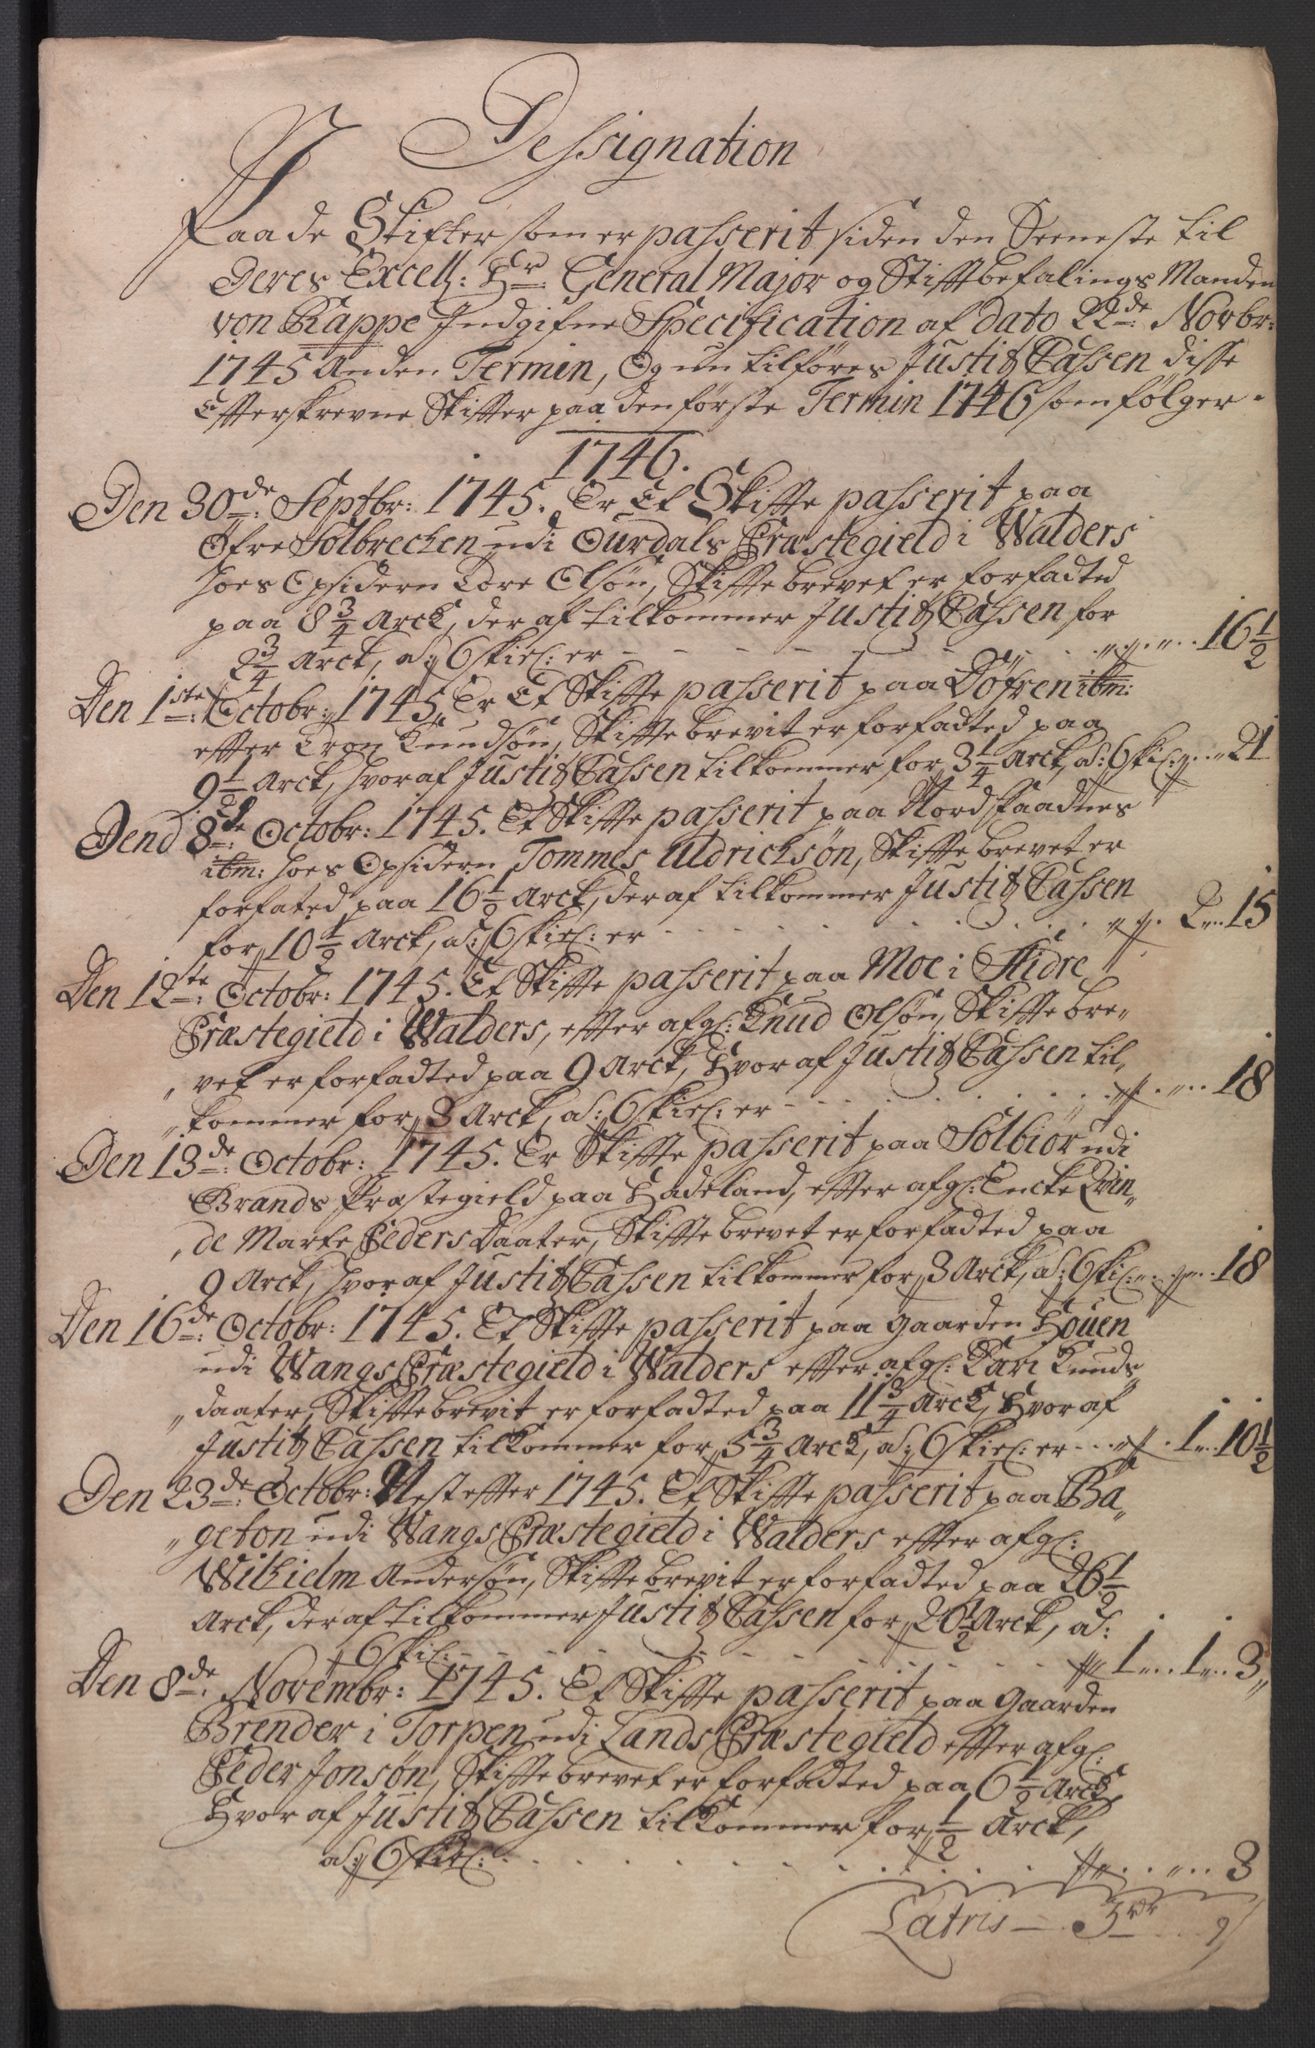 Dessignation
Paa de Skifter som er passerit siden den Seeneste til
Deres Excell: Hr General Major og Stiftbefalings Manden
von Rappe Indgifne Specification af dato 22de Novbr:
1745 Anden Termin, Og nu tilføres Justitz Cassen disse
Efterskrevne Skifter paa den første Termin 1746 som følger.
1746.
Den 30de Septbr: 1745. Er Et Skifte passerit paa
Øfre Solbrecken udi Ourdals Præstegield i Walders
hoes Opsidern Tore Olsøn, Skiftebrevet er forfadted
paa 8 3/4 Arck, der af tilkommer Justitz Cassen for
2 3/4 Arck, a 6 skil: er - - - 16 1/2
Den 1ste Octobr: 1745, Er Et Skifte passerit paa Döfren ibm:
efter Tron Knudsøn, Skiftebrevit er forfadted paa
9 1/2 Arck, hvor af Justitz Cassen tilkommer for 3 1/4 Arck, a: 6 skil: 21
Dend 8de Octobr: 1745. Et Skifte passerit paa Nord Faadnes
ibm: hoes Opsidern Tommes Uldrichsøn, Skiftebrevet er
forfated paa 16 1/2 Arck, der af tilkommer Justitz Cassen
for 10 1/2 Arck, a: 6 skil: er . . . 2 . . 15
Den 12te Octobr: 1745. Et Skifte passerit paa Moe i Slidre
Præstegield i Walders, efter afgl: Knud Olsøn, Skiftebre-
vet er forfadted paa 9 Arck, Hvor af Justitz Cassen til,
kommer for 3 Arck, a: 6 skil: er . . . 18
Den 13de Octobr: 1745. Er Skifte passerit paa Sølbiör udi
Brands Præstegield paa Hadeland, efter afgl: Encke Qvin-
de Marte Peders Daater, Skiftebrevet er forfadted paa
9 Arck, hvor af Justitz Cassen tilkommer for 3 Arck, a: 6 skil: . . 18
Den 16de Octobr: 1745. Et Skifte passerit paa Gaarden Houen
udi Wangs Præstegield i Walders efter afgl: Kari Knuds-
daater, Skiftebrevit er forfadted paa 11 3/4 Arck, Hvor af
Justitz Cassen tilkommer for 5 3/4 Arck, a: 6 skil: er . . 1 . . 10 1/2
Den 23de Octobr: Nestefter 1745. Et Skifte passerit paa Ba-
geton udi Wangs Præstegield i Walders efter afgl:
Wilhielm Andersøn, Skiftebrevit er forfadted paa 26 1/2
Arck, der af tilkommer Justitz Cassen for 20 1/2 Arck, a:
6 skil: - - - 1 . . 1 . . 3
Den 8de Novembr: 1745. Et Skifte passerit paa Gaarden
Brender i Torpen udi Lands Præstegield efter afgl:
Peder Jonsøn, Skiftebrevet er forfadted paa 6 1/2 Arck,
Hvor af Justitz Cassen tilkommer for 1/2 Arck,
a: 6 skil: . . . 3
Latris — 3 rdr . . . 9